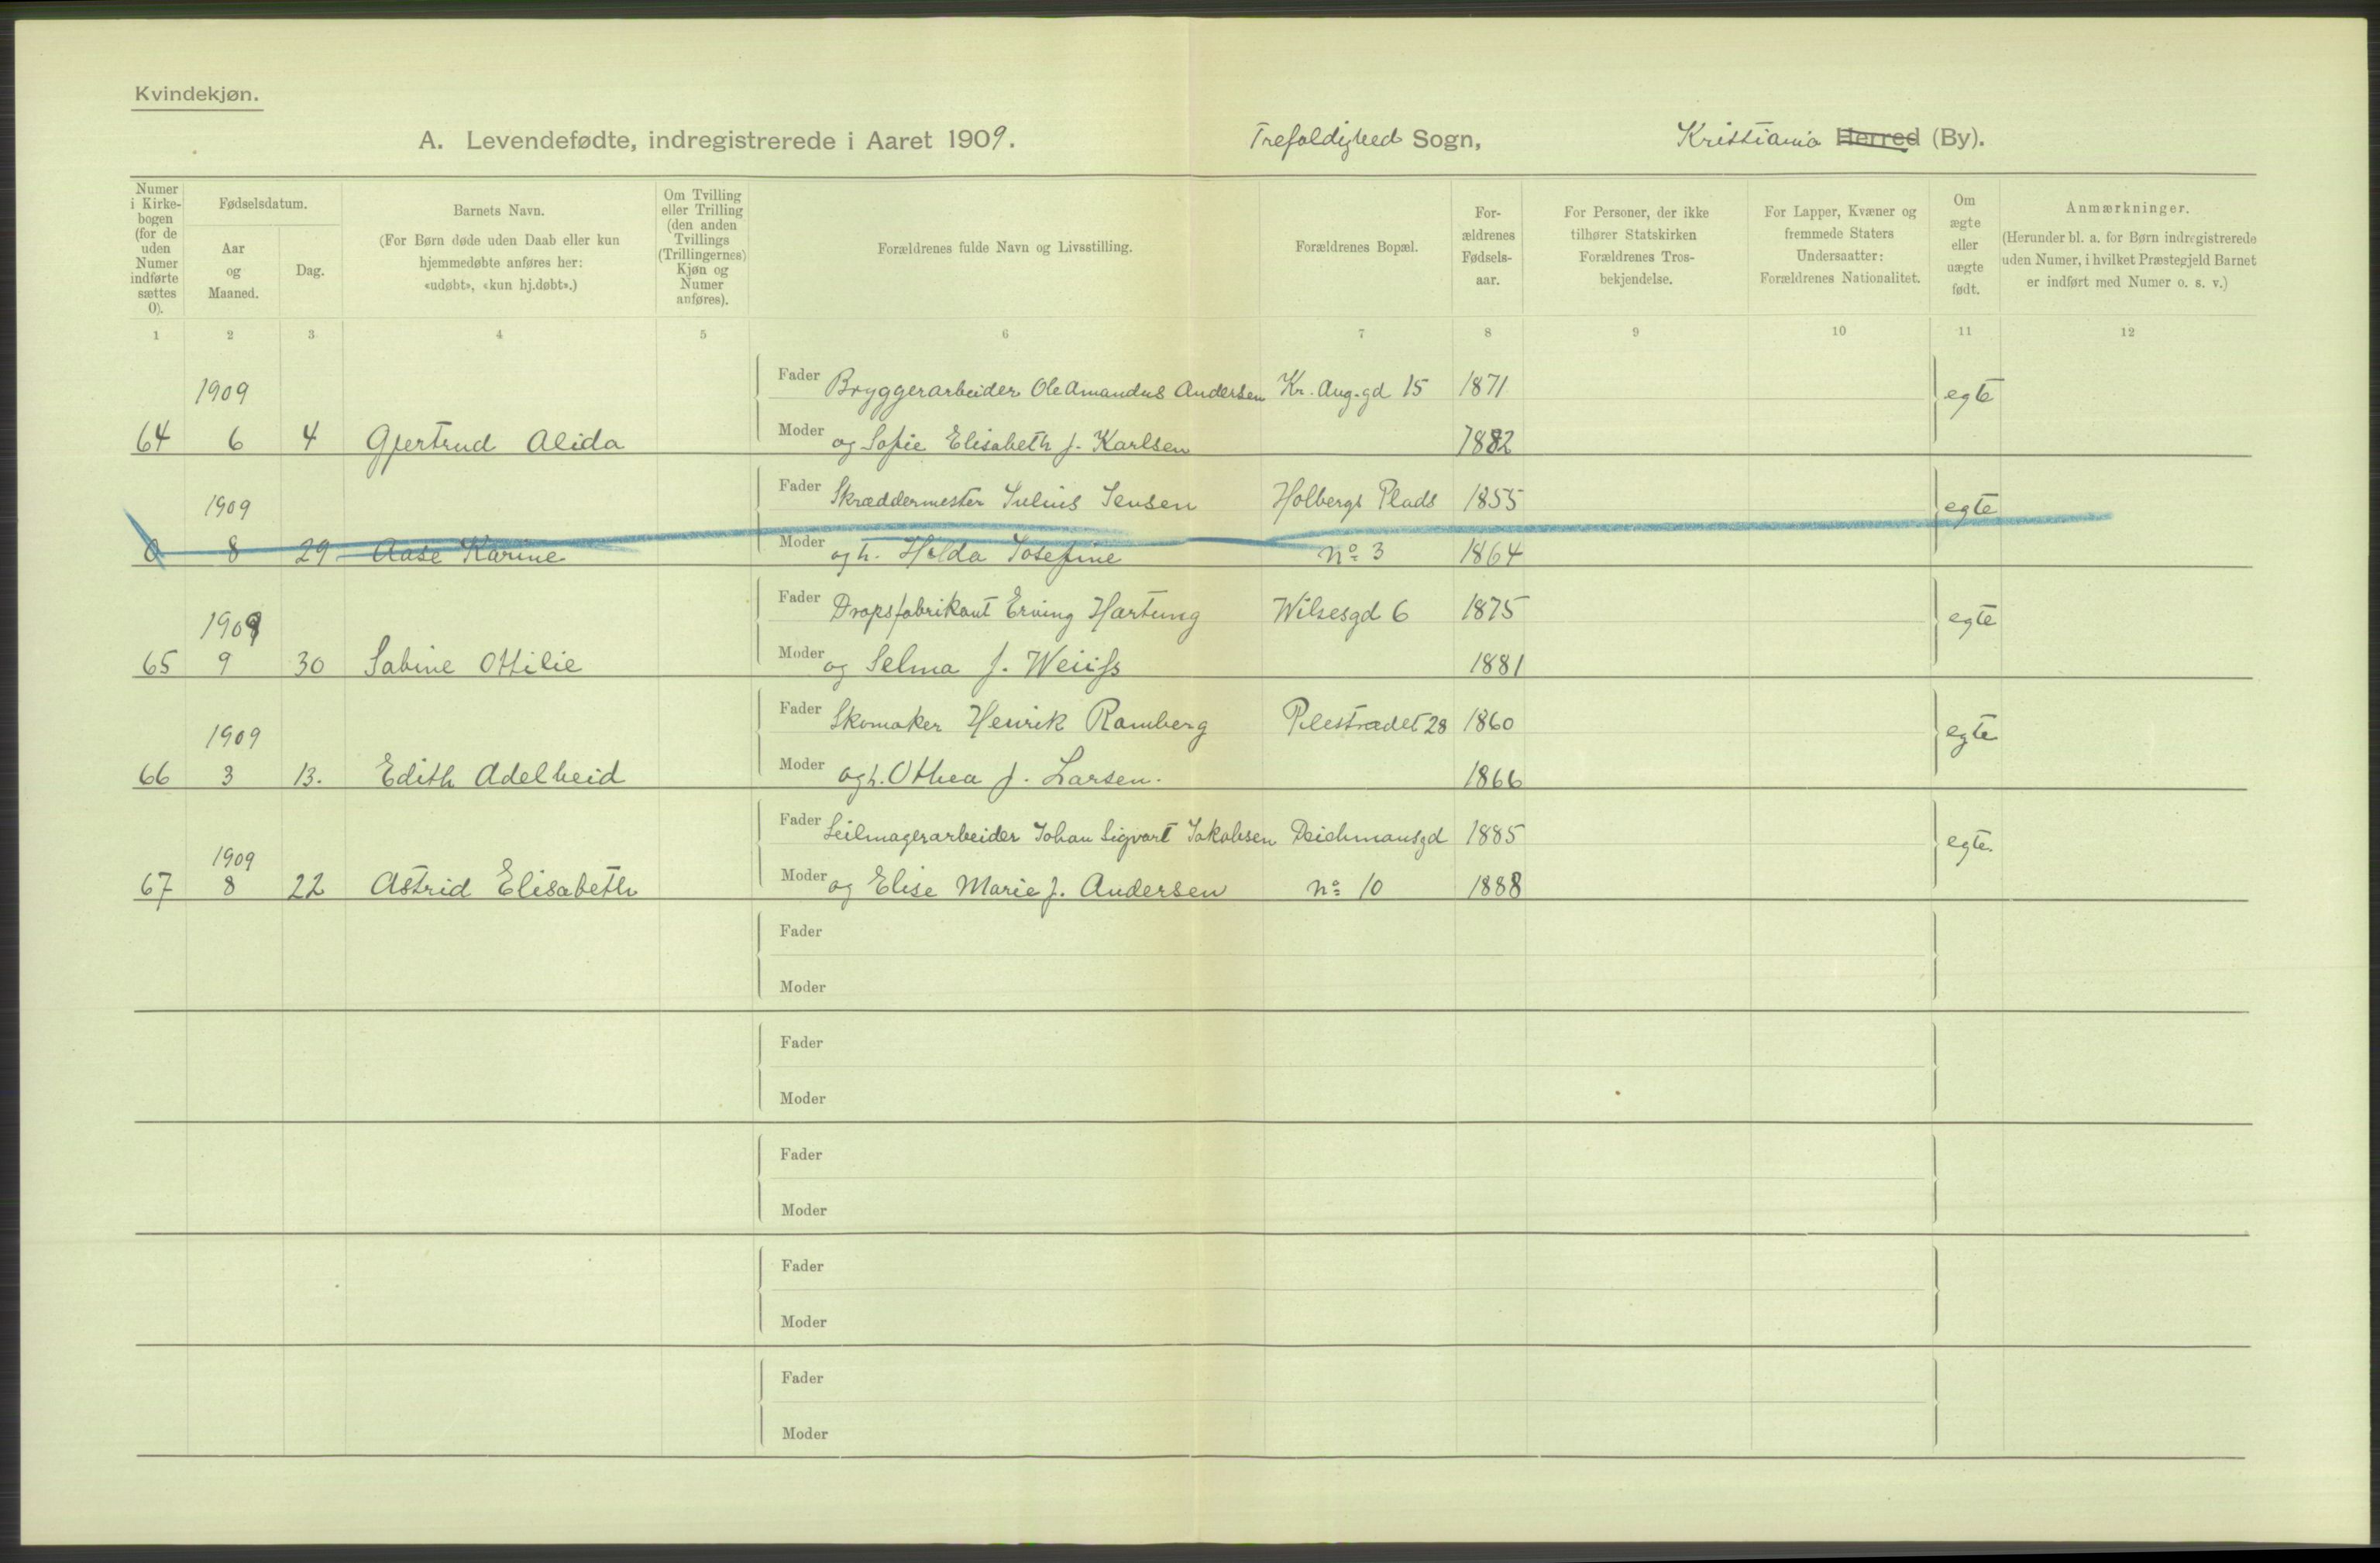 Kvindekjøn.
A. Levendefødte, indregistrerede i Aaret 1909. Trefoldighed Sogn, Kristiania Herred (By).
Numer i Kirkebogen (for de uden Numer indførte sættes 0).
Fødselsdatum.
Aar og Maaned.
Dag.
Barnets Navn.
(For Børn døde uden Daab eller kun hjemmedøbte anføres her: «udøbt», «kun hj.døbt».)
Om Tvilling eller Trilling (den anden Tvillings (Trillingernes) Kjøn og Numer anføres).
Forældrenes fulde Navn og Livsstilling.
Forældrenes Bopæl.
For-ældrenes Fødsels-aar.
For Personer, der ikke tilhører Statskirken Forældrenes Tros-bekjendelse.
For Lapper, Kvæner og fremmede Staters Undersaatter: Forældrenes Nationalitet.
Om ægte eller uægte født.
Anmærkninger.
(Herunder bl. a. for Børn indregistrerede uden Numer, i hvilket Præstegjeld Barnet er indført med Numer o. s. v.)
1 2 3 4 5 6 7 8 9 10 11 12
1909 Fader Bryggerarbeider Ole Amandus Andersen Kr. Aug.gd 15 1871 egte
64 6 4 Gjertrud Alida Moder og Sofie Elisabeth f. Karlsen 1882
1909 Fader Skræddermester Julius Jensen Holbergs Plads 1855 egte
0 8 29 Aase Karine Moder og h. Hilda Josefine No 3 1864
1909 Fader Dropsfabrikant Erning Hartung Wilsesgd 6 1875 egte
65 9 30 Sabine Ottilie Moder og Selma f. Weiiss 1881
1909 Fader Skomaker Henrik Ramberg Pilestrædet 28 1860 egte
66 3 13. Edith Adelheid Moder og h. Othea f. Larsen. 1866
1909 Fader Seilmagerarbeider Johan Sigvart Jakobsen Deichmansgd 1885 egte.
67 8 22 Astrid Elisabeth Moder og Elise Marie f. Andersen No 10 1888
Fader
Moder
Fader
Moder
Fader
Moder
Fader
Moder
Fader
Moder